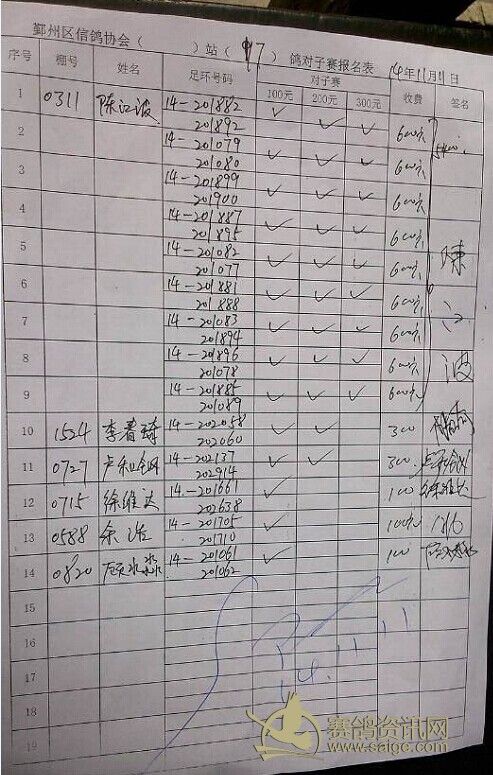 鄞州区信鸽协会（ ）站（ 97 ）鸽对子赛报名表 14年11月11日
序号 棚号 姓名 足环号码 对子赛 收费 签名
100元 200元 300元
1 0311 陈江波 14-201882 ✓ ✓ ✓ 600元
201892
2 14-201079 ✓ ✓ ✓ 600元
201080
3 14-201899 ✓ ✓ ✓ 600元
201900
4 14-201887 ✓ ✓ ✓ 600元
201895
5 14-201082 ✓ ✓ ✓ 600元 陈
201077
6 14-201881 ✓ ✓ ✓ 600元 江
201888
7 14-201083 ✓ ✓ ✓ 600元
201894
8 14-201896 ✓ ✓ ✓ 600元 波
201078
9 14-201885 ✓ ✓ ✓ 600元
201089
10 1524 李春琦 14-202058 ✓ ✓ 300
202060
11 0727 卢和 14-202137 ✓ ✓ 300
202914
12 0715 徐维达 14-201661 ✓ 100 徐维达
202638
13 0588 余 14-201705 ✓ 100元
201710
14 0820 14-201061 ✓ 100
201062
15
16
17
18
19
14.11.11
赛鸽资讯网
www.saige.com